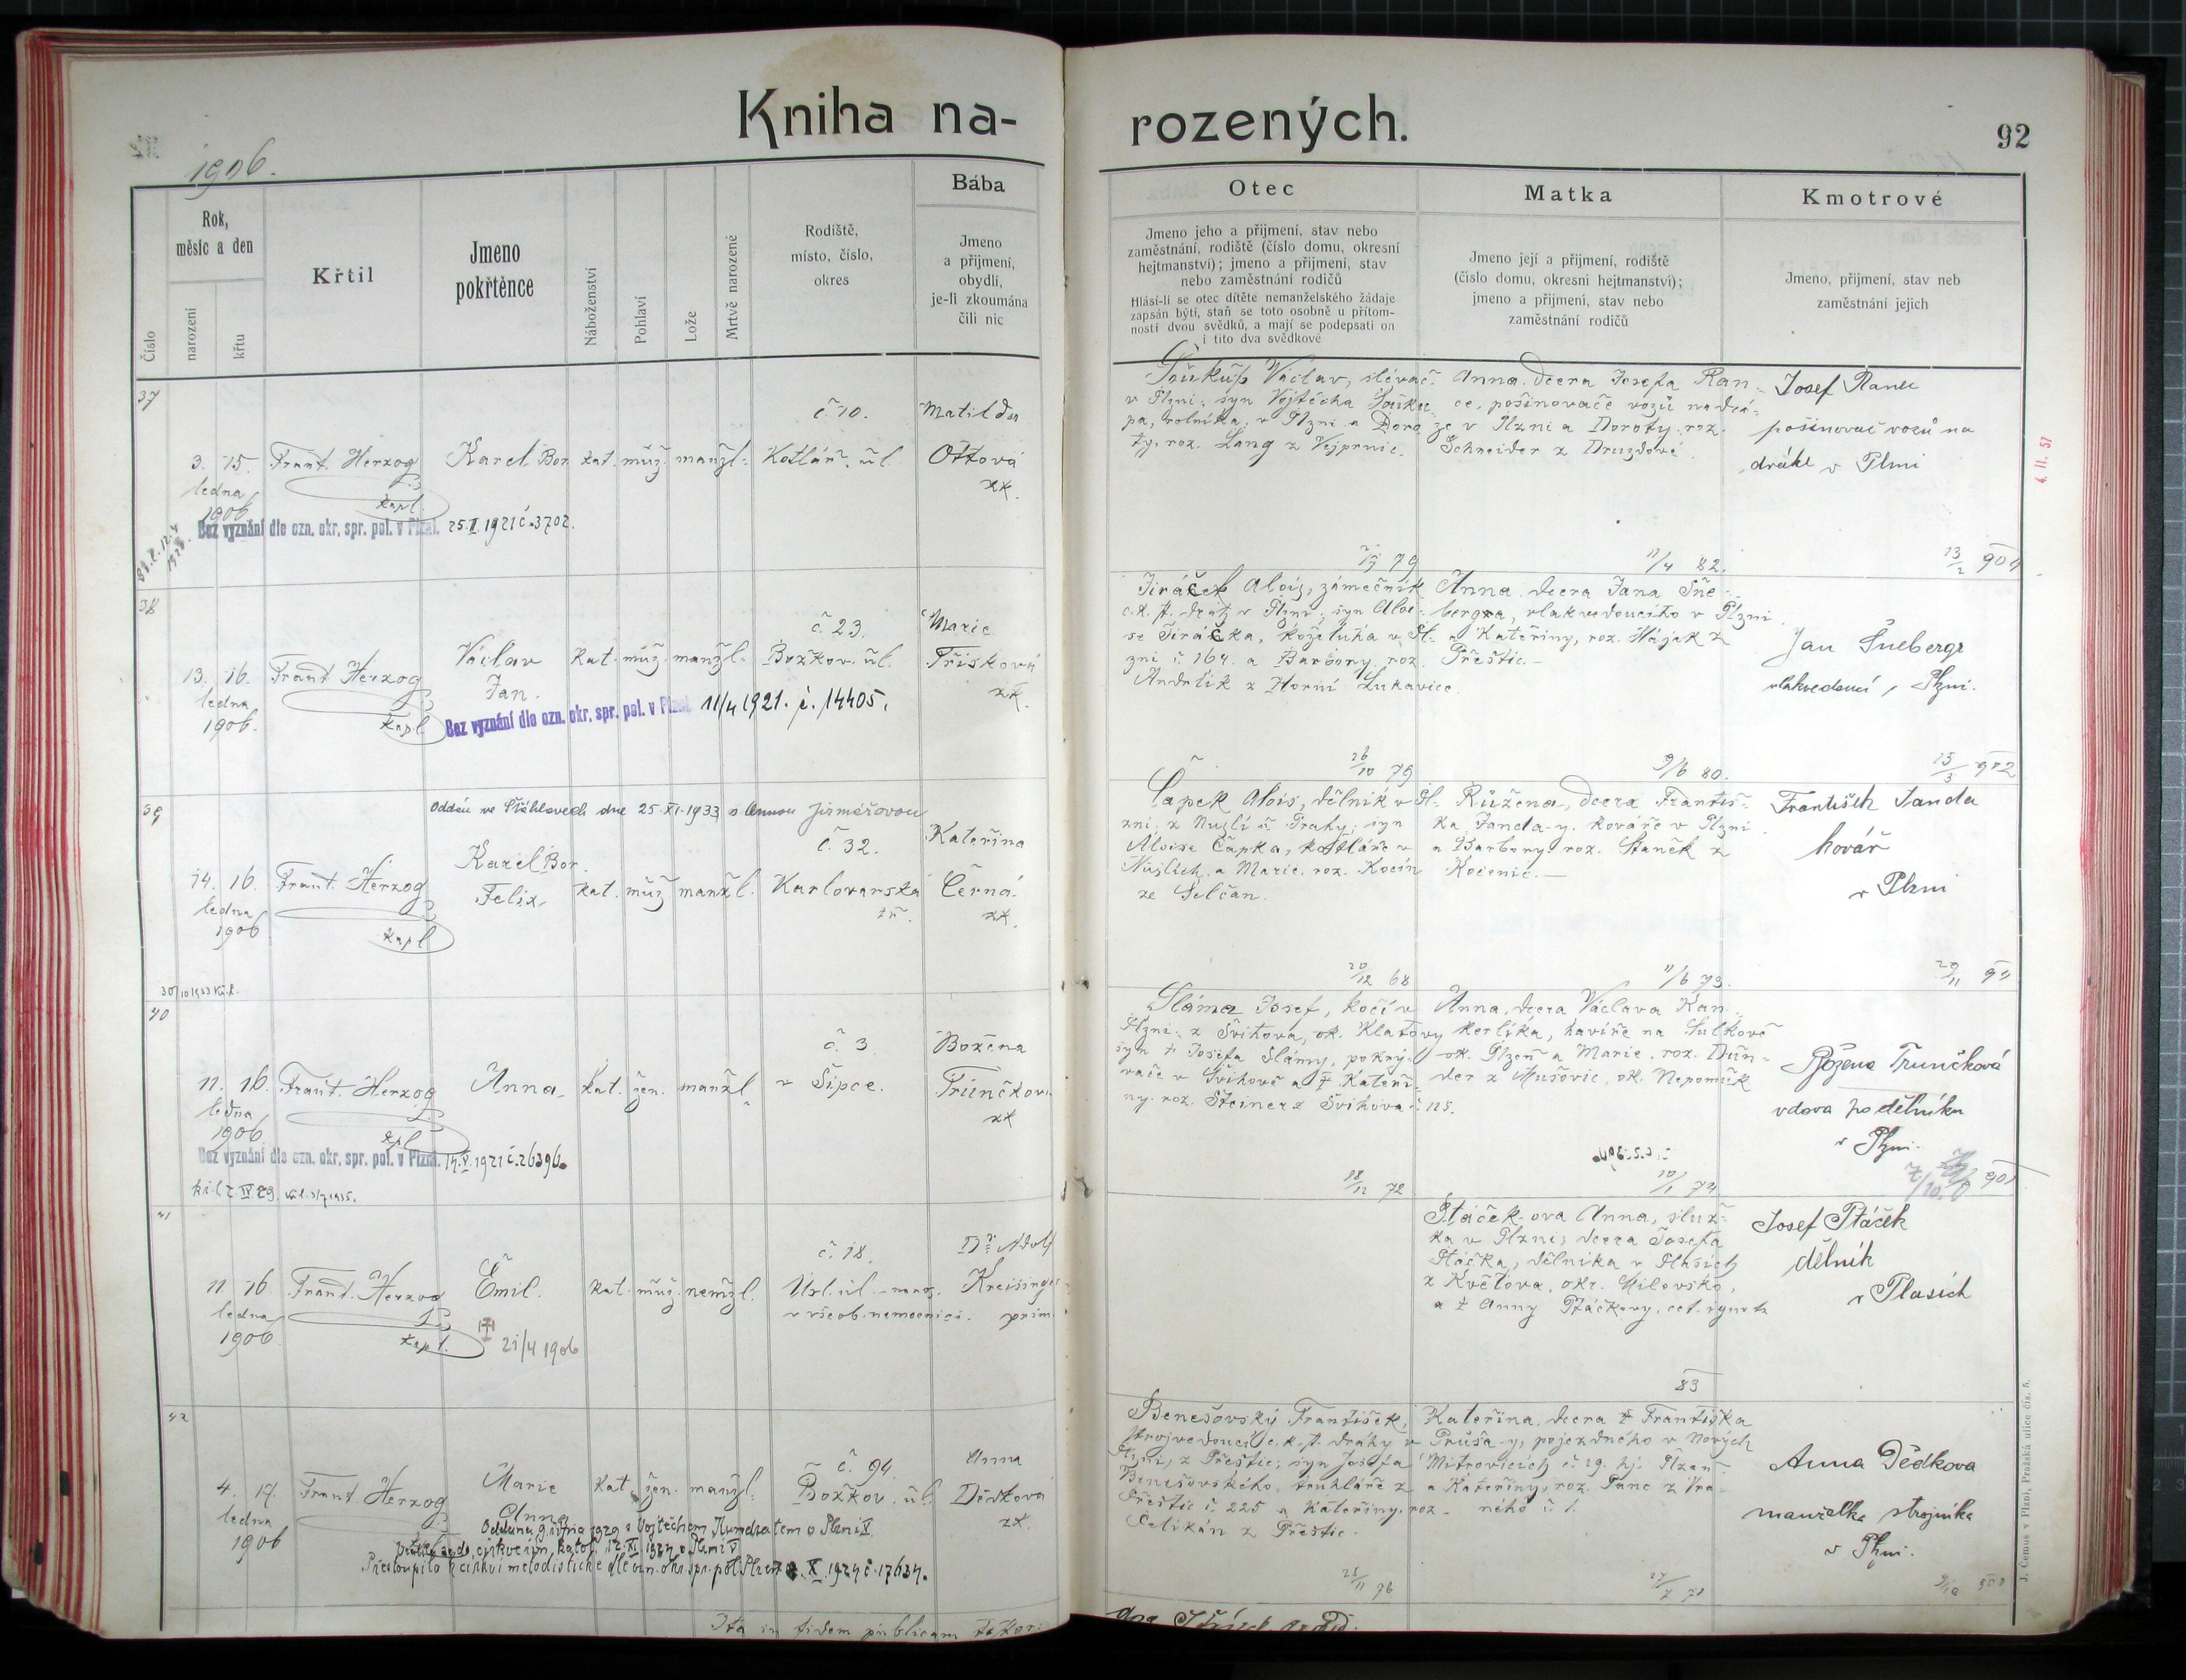 Kniha na-
rozených.
92
1906.
Číslo
Rok,
měsíc a den
narození
křtu
Křtil
Jmeno
pokřtěnce
Náboženství
Pohlaví
Lože
Mrtvě narozené
Rodiště,
místo, číslo,
okres
Bába
Jmeno
a přijmení,
obydlí,
je-li zkoumána
čili nic
Otec
Jmeno jeho a přijmení, stav nebo
zaměstnání, rodiště (číslo domu, okresní
hejtmanství); jmeno a přijmení, stav
nebo zaměstnání rodičů
Hlásí-li se otec dítěte nemanželského žádaje
zapsán býti, staň se toto osobně u přítom-
nosti dvou svědků, a mají se podepsati on
i tito dva svědkové
Matka
Jmeno její a přijmení, rodiště
(číslo domu, okresní hejtmanství);
jmeno a přijmení, stav nebo
zaměstnání rodičů
Kmotrové
Jmeno, přijmení, stav neb
zaměstnání jejich
37
3. 15.
ledna
1906
Frant. Herzog
kapl.
Karel Bor.
kat. muž. manžl.
č. 10.
Kotlář. ul.
Matilda
Ottová
zk.
Bez vyznání dle ozn. okr. spr. pol. v Plzni. 25. I. 1921 č. 3702.
Soukup Václav, slévač
v Plzni, syn Vojtěcha Souku-
pa, rolníka, v Plzni a Doro-
ty, roz. Lang z Vejprnic.
Anna, dcera Josefa Ran-
ce, pošinovače vozů na drá-
ze v Plzni a Doroty, roz.
Schneider z Druzdové.
Josef Ranec
pošinovač vozů na
dráhe v Plzni
4. II. 57
79
11/4 82.
38
13. 16.
ledna
1906.
Frant Herzog
kapl
Václav
Jan.
kat. muž. manžl.
č. 23.
Božkov. ul.
Marie
Třísková
zk.
Bez vyznání dle ozn. okr. spr. pol. v Plzni. 11/4 1921. č. 14405.
Jiráček Alois, zámečník
c. k. st. dráh v Plzni, syn Aloi-
se Jiráčka, koželuha v Pl-
zni č. 164. a Barbory, roz.
Andrlík z Horní Lukavice.
Anna, dcera Jana Šne-
bergra, vlakvedoucího v Plzni
a Kateřiny, roz. Hájek z
Přeštic.
Jan Šnebergr
vlakvedoucí, Plzni.
26/10 79
9/6 80.
15/3 902
39
Oddán ve Šťáhlavech dne 25. XI. 1933 s Annou Jirmářovou
14. 16.
ledna
1906
Frant. Herzog
kapl
Karel Bor.
Felix
kat. muž. manžl.
č. 32.
Karlovarská
tř.
Kateřina
Černá
zk.
Čapek Alois, dělník v Pl-
zni, z Nuslí u Prahy, syn
Aloise Čapka, kotláře v
Nuslích, a Marie, roz. Kocín
ze Selčan.
Růžena, dcera Františ-
ka Janda-y, kováře v Plzni
a Barbory, roz. Staněk z
Kocenic.
František Janda
kovář
v Plzni
20/12 68
11/6 73.
40
11. 16.
ledna
1906
Frant. Herzog
kpl
Anna
kat. žen. manžl.
č. 3
v Šipce.
Božena
Trunčková
zk
Bez vyznání dle ozn. okr. spr. pol. v Plzni. 14. V. 1921 č. 26396.
Sláma Josef, kočí v
Plzni, z Švihova, ok. Klatovy
syn † Josefa Slámy, pokrý-
vače v Švihově a † Kateři-
ny, roz. Steiner z Švihova č. 125.
Anna, dcera Václava Kan-
kerlíka, havíře na Sulkově
ok. Plzeň a Marie, roz. Dun-
der z Mušovic, ok. Nepomuk
Božena Trunčková
vdova po dělníku
v Plzni.
18/12 72
10/1 74
41
11. 16.
ledna
1906
Frant. Herzog
kapl.
Emil.
21/4 1906
kat. muž. nemžl.
č. 18.
v všeob. nemocnici.
Dr. Adolf
Kreisinger
prim.
Ptáček-ova Anna, služ-
ka v Plzni, dcera Josefa
Ptáčka, dělníka v Plasích
z Květova, okr. Milevsko,
a † Anny Ptáčkovy,
Josef Ptáček
dělník
v Plasích
83
42
4. 17.
ledna
1906
Frant Herzog
Marie
Anna
kat. žen. manžl.
č. 94.
Božkov. ul.
Anna
Dědková
zk.
Oddána 9. října 1929 s Vojtěchem Kundratem v Plzni V.
Přestoupila k církvi metodistické dle ozn. okr. spr. pol. Plzeň X. 1924 č. 17634.
Benešovský František,
strojvedoucí c. k. st. dráhy v
Plzni, z Přeštic, syn Josefa
Benešovského, truhláře z
Přeštic č. 225 a Kateřiny, roz.
Čelikán z Přeštic.
Kateřina, dcera † Františka
Průša-y, pojezdného v Nových
Mitrovicích č. 19. hj. Plzeň
a Kateřiny, roz. Panc z Vra-
ného č. 1.
Anna Dědkova
manželka strojníka
v Plzni.
25/11 76
Ita in fidem publicam
J. Čemus v Plzni, Pražská ulice čís. 5.